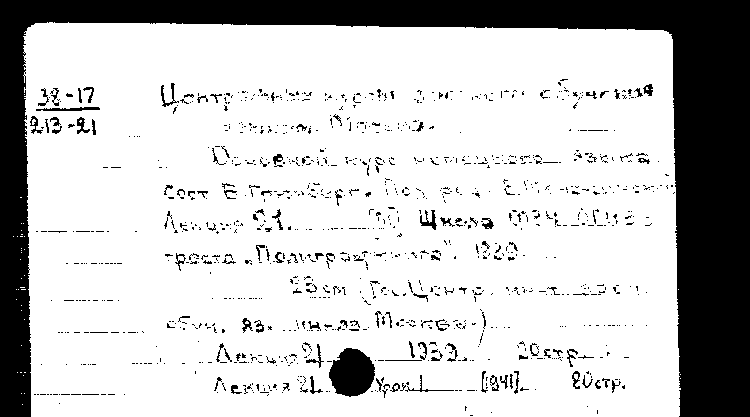 38-17
213-21
Центральные курсы заочного обучения
языкам. Москва.
Основной курс немецкого языка.
Сост. Е. Гринберг. Под ред. Е.
Лекция 21. [М] Школа ФЗУ ОГИЗ-
треста „Полиграфкнига". 1939.
23 см (Гос. Центр. ин-т заоч.
обуч. яз. ин-яз Москва.)
Лекция 21 1939. 20 стр.
Лекция 21. Урок 1. [1941]. 20 стр.